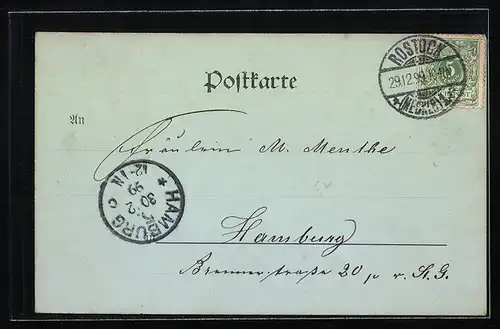 Postkarte
ROSTOCK
29.12.99.
(MECKLB)
5
An
Fräulein M. Menthe
HAMBURG
30 12
99
12-1N.
Hamburg
Bremerstraße 20 p r. St. G.